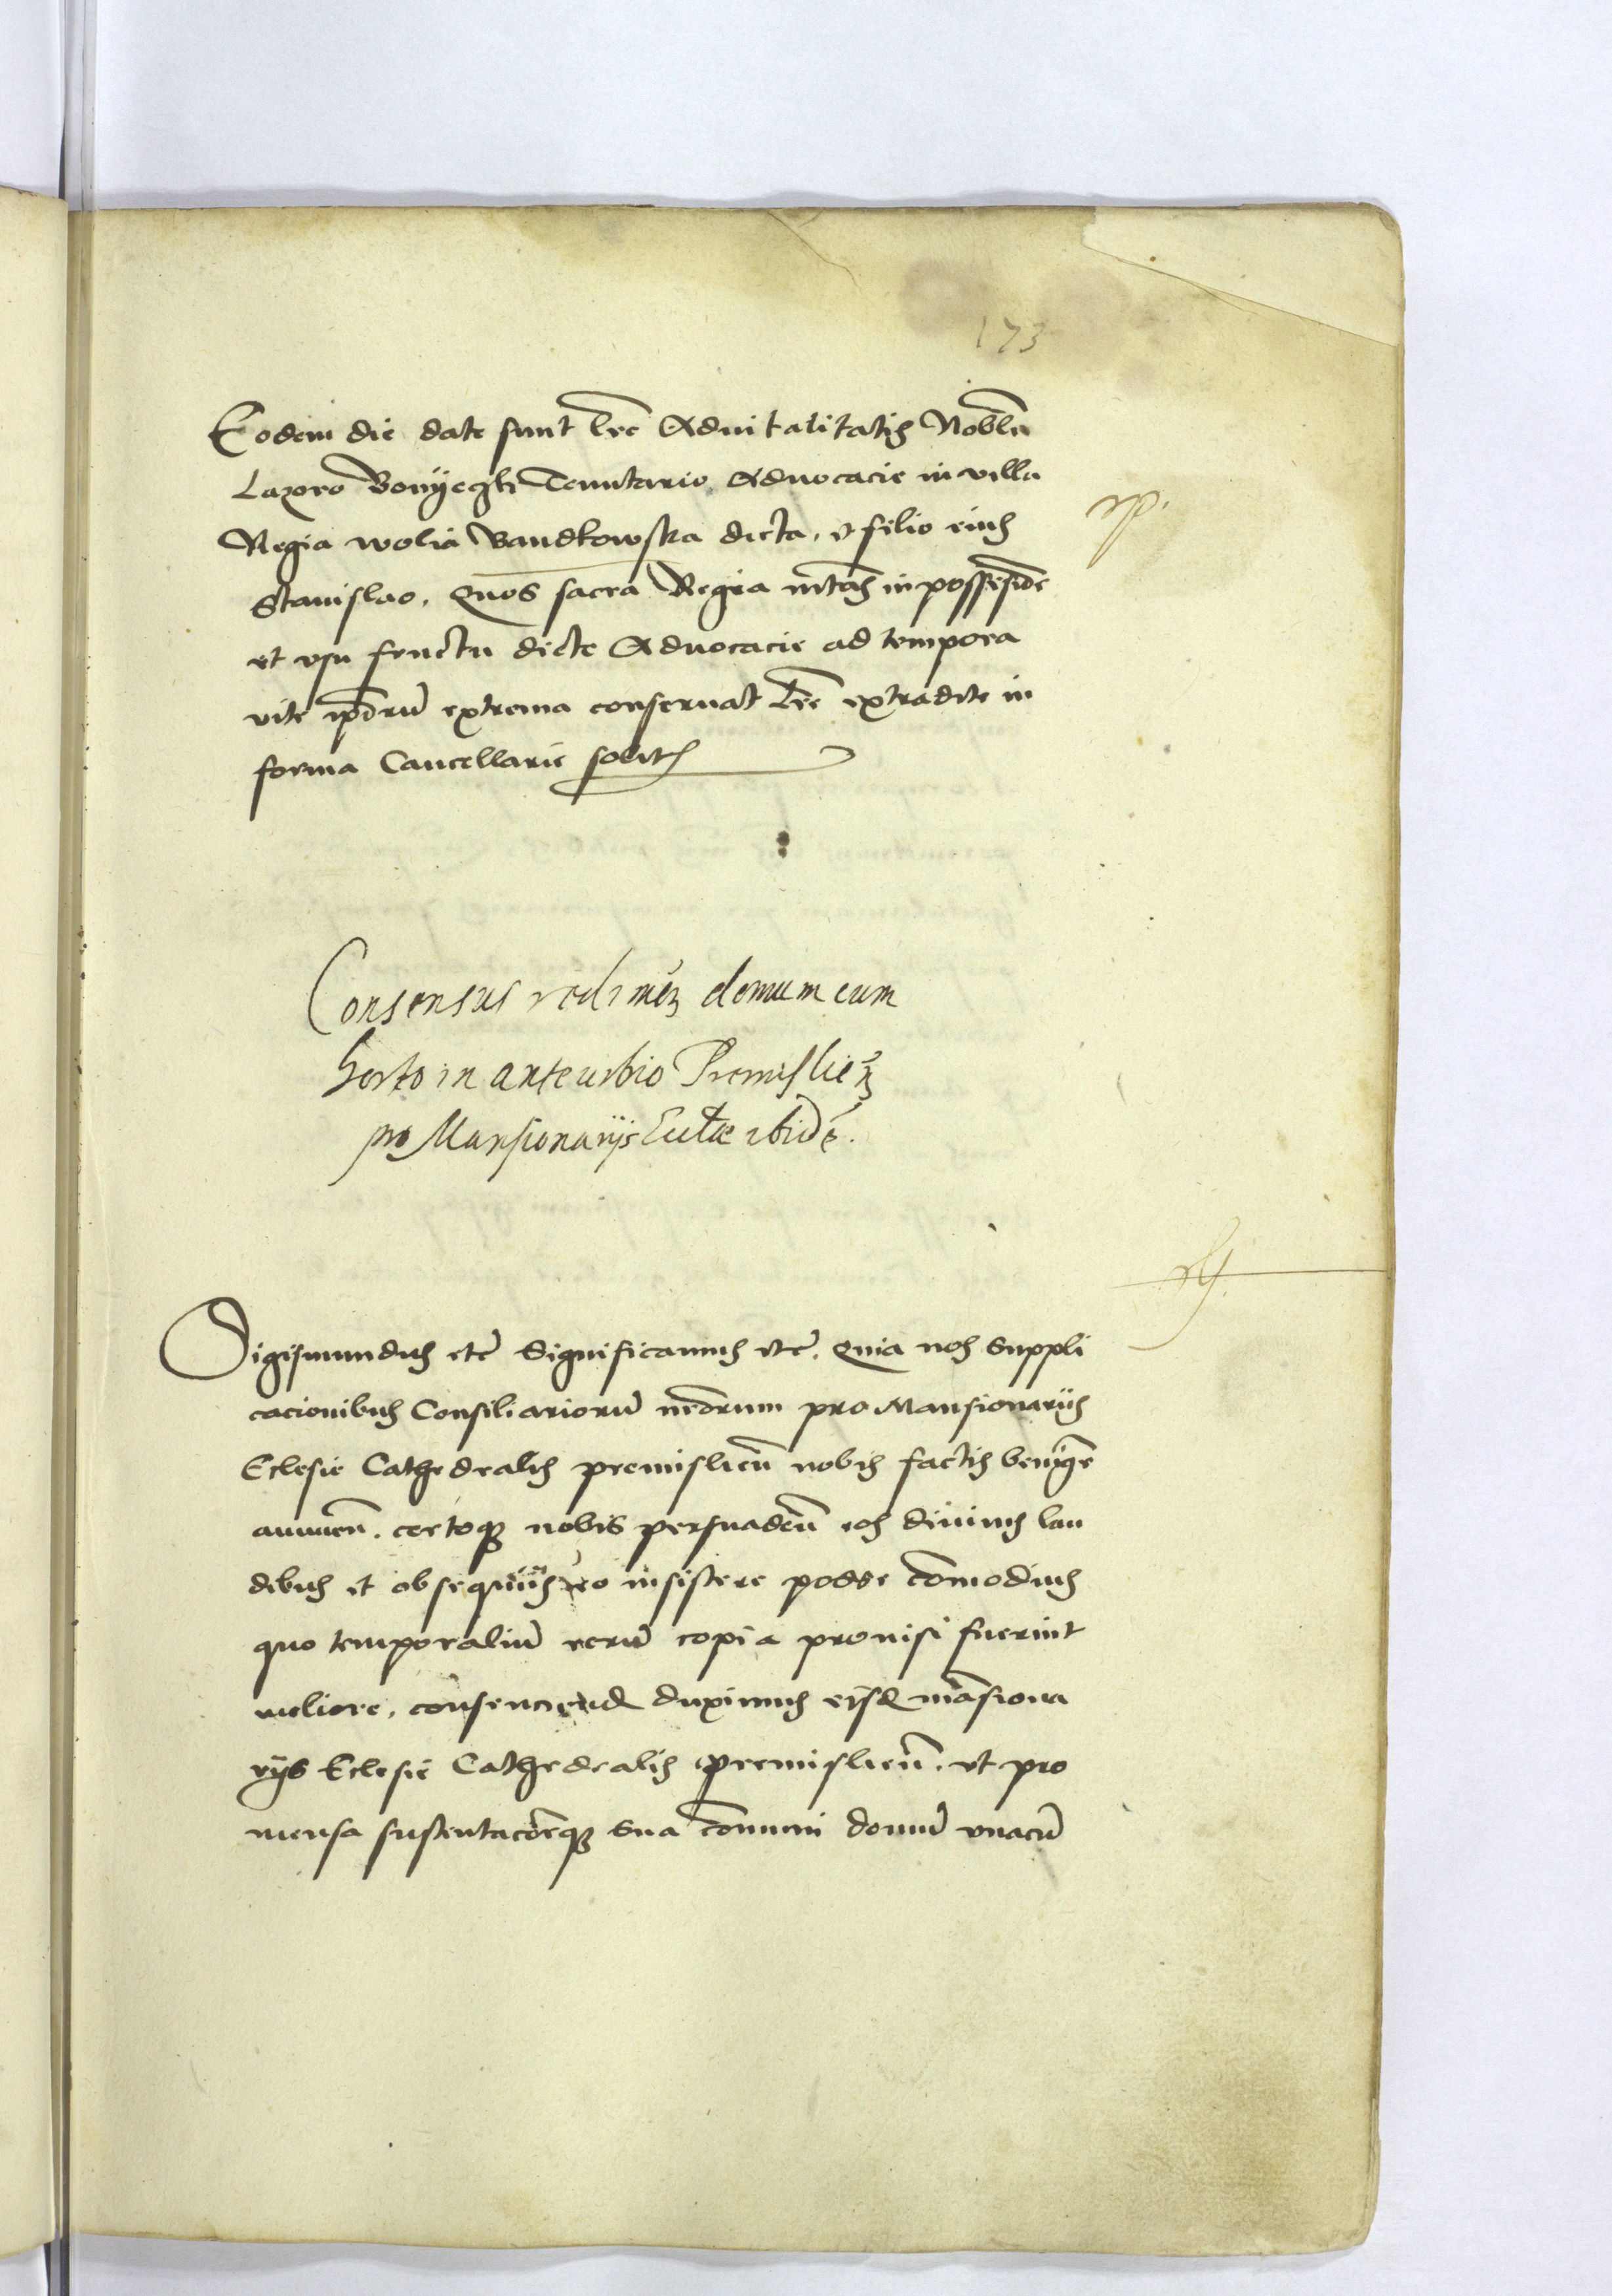 173
Eodem die date sunt lre Aduitalitatis Nobili
Lazoro Bonyegli Tenutario Aduocacie in villa
Regia wolia Bandkowska dicta, et filio eius
Stanislao, Quos sacra Regia mtas in possessione
et vsu fructu dicte Aduocacie ad tempora
vite ipsorum extrema conseruat Lre extradite in
forma Cancellarie solit
Consensus redimen domum cum
horto in anteurbio Premislien
pro Mansionarijs Eccliae ibidem.
Sigismundus etc Significamus etc. Quia nos suppli
cacionibus Consiliariorum nrorum pro Mansionariis
Eclesie Cathedralis premislien nobis factis benigne
annuen. certoque nobis persuaden eos diuinis lau
dibus et obsequiis eo insistere posse comodius
quo temporalium rerum copia prouisi fuerint
meliore, consenciend duximus eisd mansiona
rijs Eclesie Cathedralis premislien. vt pro
mensa sustentacioneque sua comuni domum vnacum